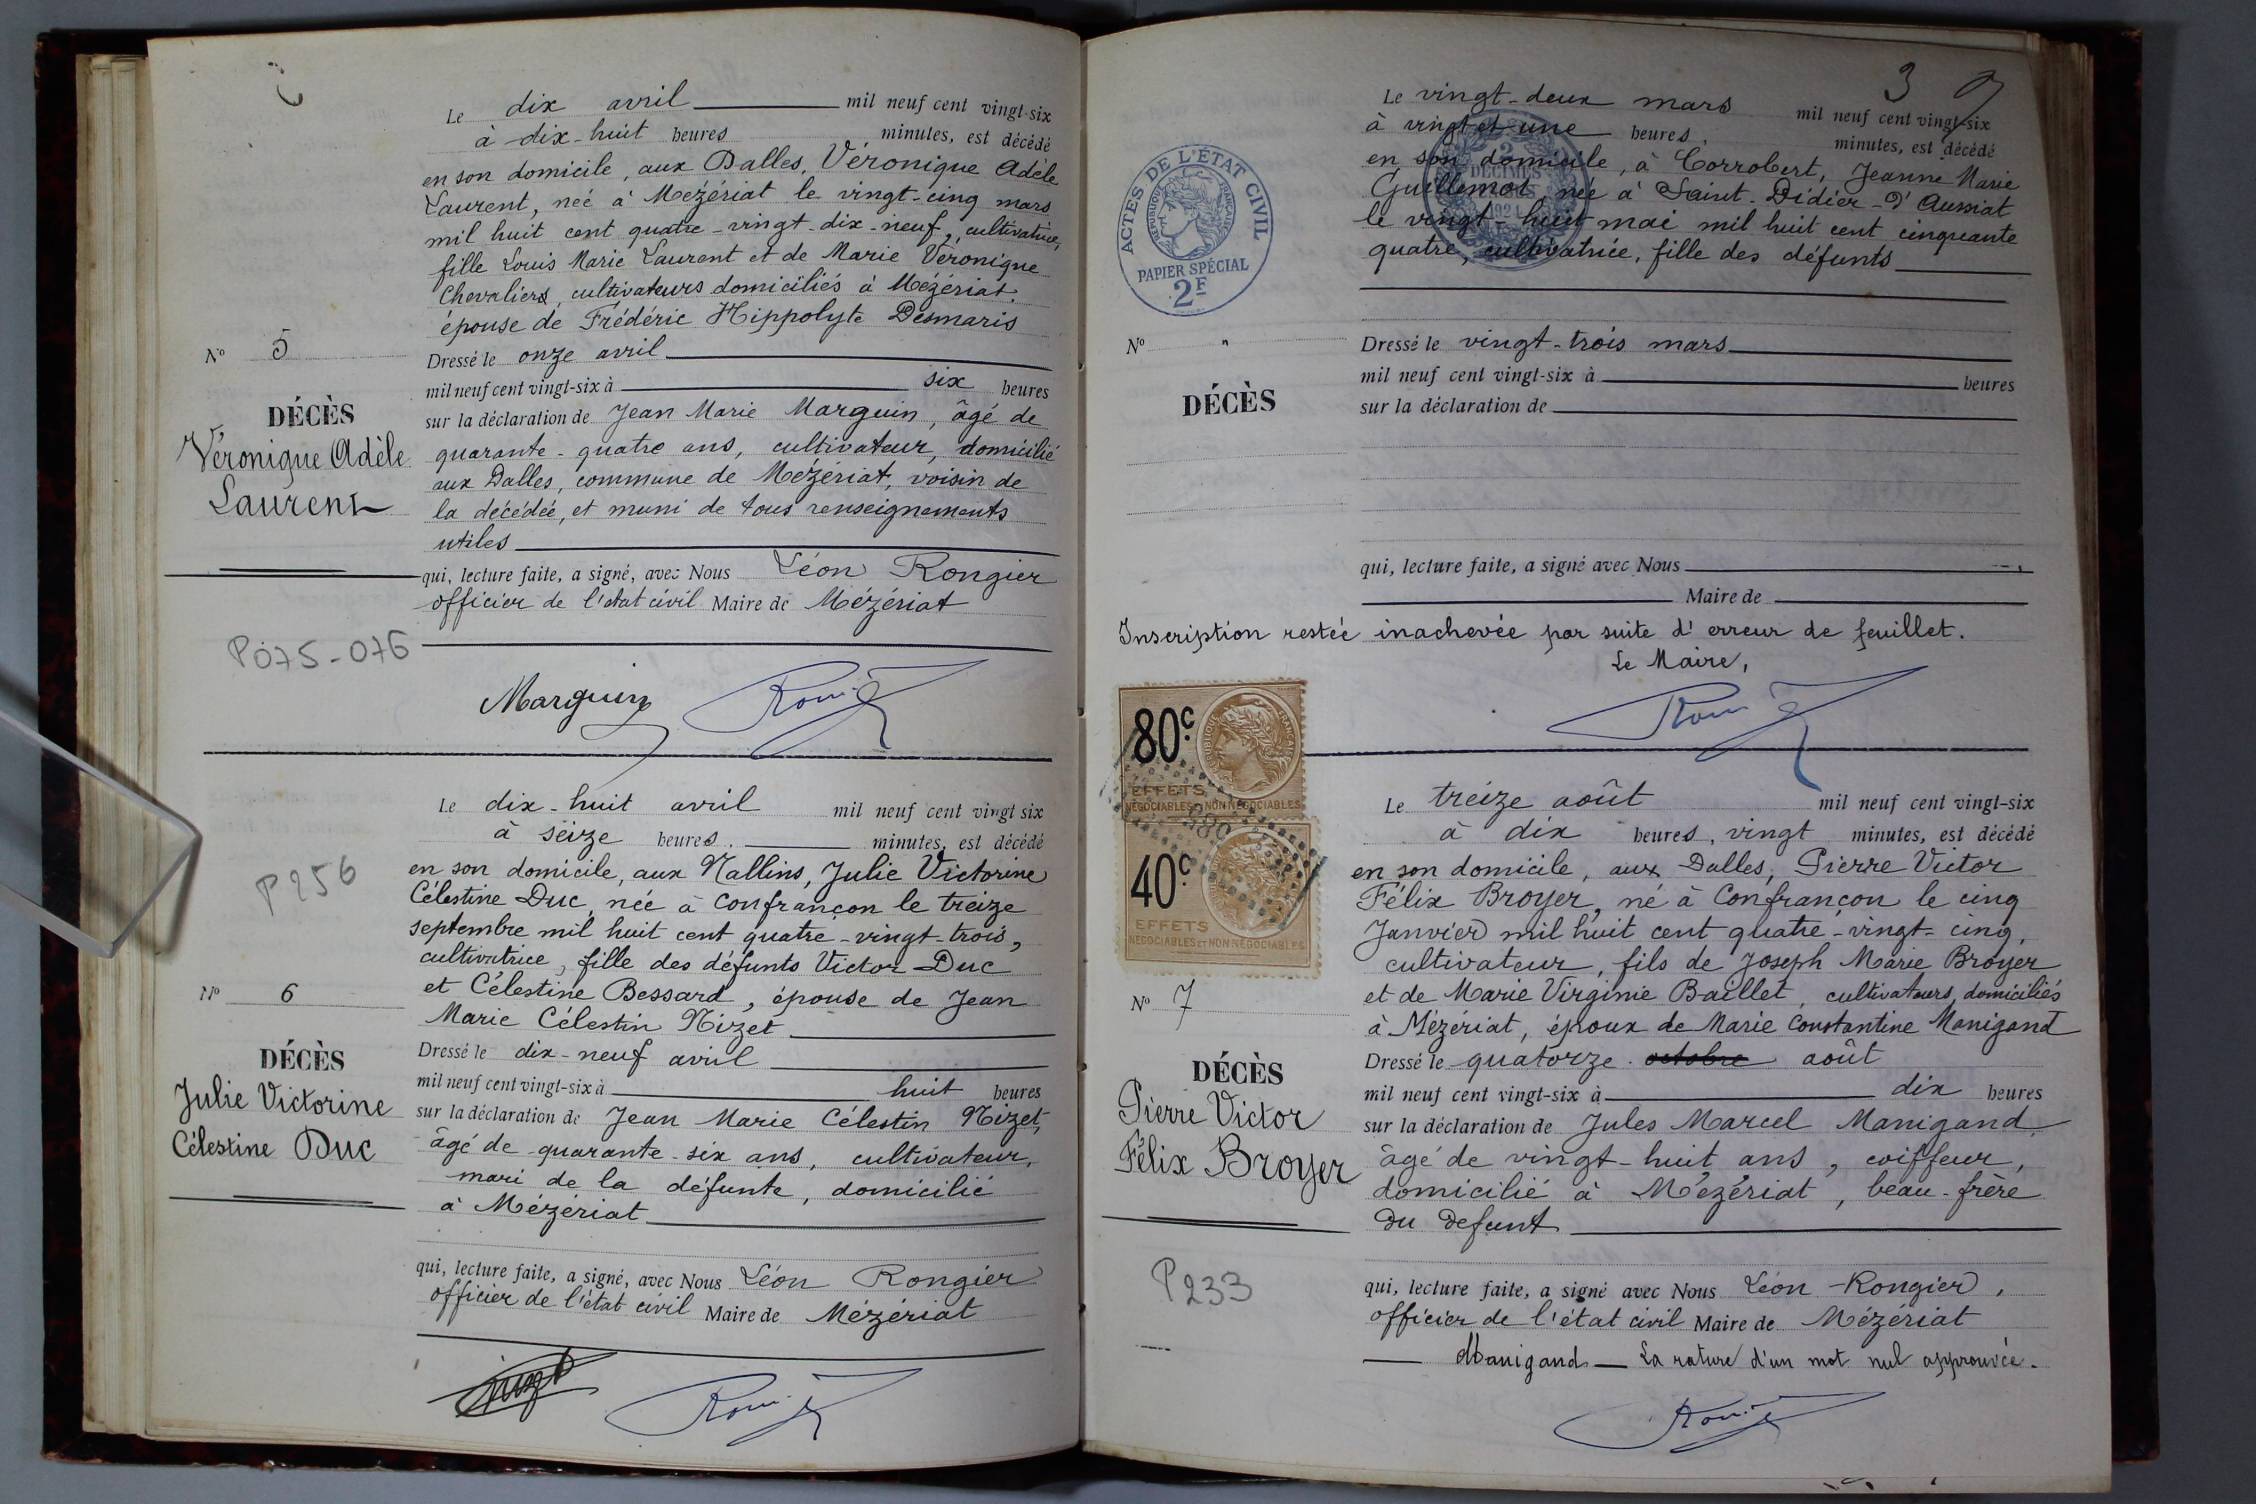 Le dix avril mil neuf cent vingt-six
à dix-huit heures minutes, est décédé
en son domicile, aux Dalles, Véronique Adèle
Laurent, née à Mézériat le vingt-cinq mars
mil huit cent quatre-vingt-dix-neuf, cultivatrice,
fille Louis Marie Laurent et de Marie Véronique
Chevalier, cultivateurs domiciliés à Mézériat,
épouse de Frédéric Hippolyte Desmaris
N° 5
Dressé le onze avril
mil neuf cent vingt-six à six heures
DÉCÈS
sur la déclaration de Jean Marie Marguin, âgé de
Véronique Adèle
quarante-quatre ans, cultivateur, domicilié
aux Dalles, commune de Mézériat, voisin de
Laurent
la décédée, et muni de tous renseignements
utiles
qui, lecture faite, a signé, avec Nous Léon Rongier
officier de l'état civil Maire de Mézériat
P075-076
Marguin
Le dix-huit avril mil neuf cent vingt six
à seize heures minutes, est décédé
en son domicile, aux Nallins, Julie Victorine
P256
Célestine Duc, née à Confrançon le treize
septembre mil huit cent quatre-vingt-trois,
cultivatrice, fille des défunts Victor Duc
et Célestine Bessard, épouse de Jean
N° 6
Marie Célestin Nizet
Dressé le dix-neuf avril
DÉCÈS
mil neuf cent vingt-six à huit heures
Julie Victorine
sur la déclaration de Jean Marie Célestin Nizet,
Célestine Duc
âgé de quarante-six ans, cultivateur,
mari de la défunte, domicilié
à Mézériat
qui, lecture faite, a signé, avec Nous Léon Rongier
officier de l'état civil Maire de Mézériat
3
Le vingt-deux mars mil neuf cent vingt-six
à vingt et une heures, minutes, est décédé
en son domicile, à Corrobert, Jeanne Marie
Guillemot, née à Saint-Didier-d'Aussiat
le vingt-huit mai mil huit cent cinquante
quatre, cultivatrice, fille des défunts
ACTES DE L'ÉTAT CIVIL
RÉPUBLIQUE FRANÇAISE
PAPIER SPÉCIAL
2F
2 DÉCIMES
1921
N° "
Dressé le vingt-trois mars
mil neuf cent vingt-six à heures
DÉCÈS
sur la déclaration de
qui, lecture faite, a signé avec Nous
Maire de
Inscription restée inachevée par suite d'erreur de feuillet.
Le Maire,
80c
EFFETS
NÉGOCIABLES ET NON NÉGOCIABLES
40c
EFFETS
NÉGOCIABLES ET NON NÉGOCIABLES
Le treize août mil neuf cent vingt-six
à dix heures, vingt minutes, est décédé
en son domicile, aux Dalles, Pierre Victor
Félix Broyer, né à Confrançon le cinq
Janvier mil huit cent quatre-vingt-cinq,
cultivateur, fils de Joseph Marie Broyer
et de Marie Virginie Baillet, cultivateurs, domiciliés
N° 7
à Mézériat, époux de Marie Constantine Manigand
Dressé le quatorze octobre août
DÉCÈS
mil neuf cent vingt-six à dix heures
Pierre Victor
sur la déclaration de Jules Marcel Manigand
Félix Broyer
âgé de vingt-huit ans, coiffeur,
domicilié à Mézériat, beau-frère
du defunt
P233
qui, lecture faite, a signé avec Nous Léon Rongier,
officier de l'état civil Maire de Mézériat
Manigand La rature d'un mot nul approuvée.